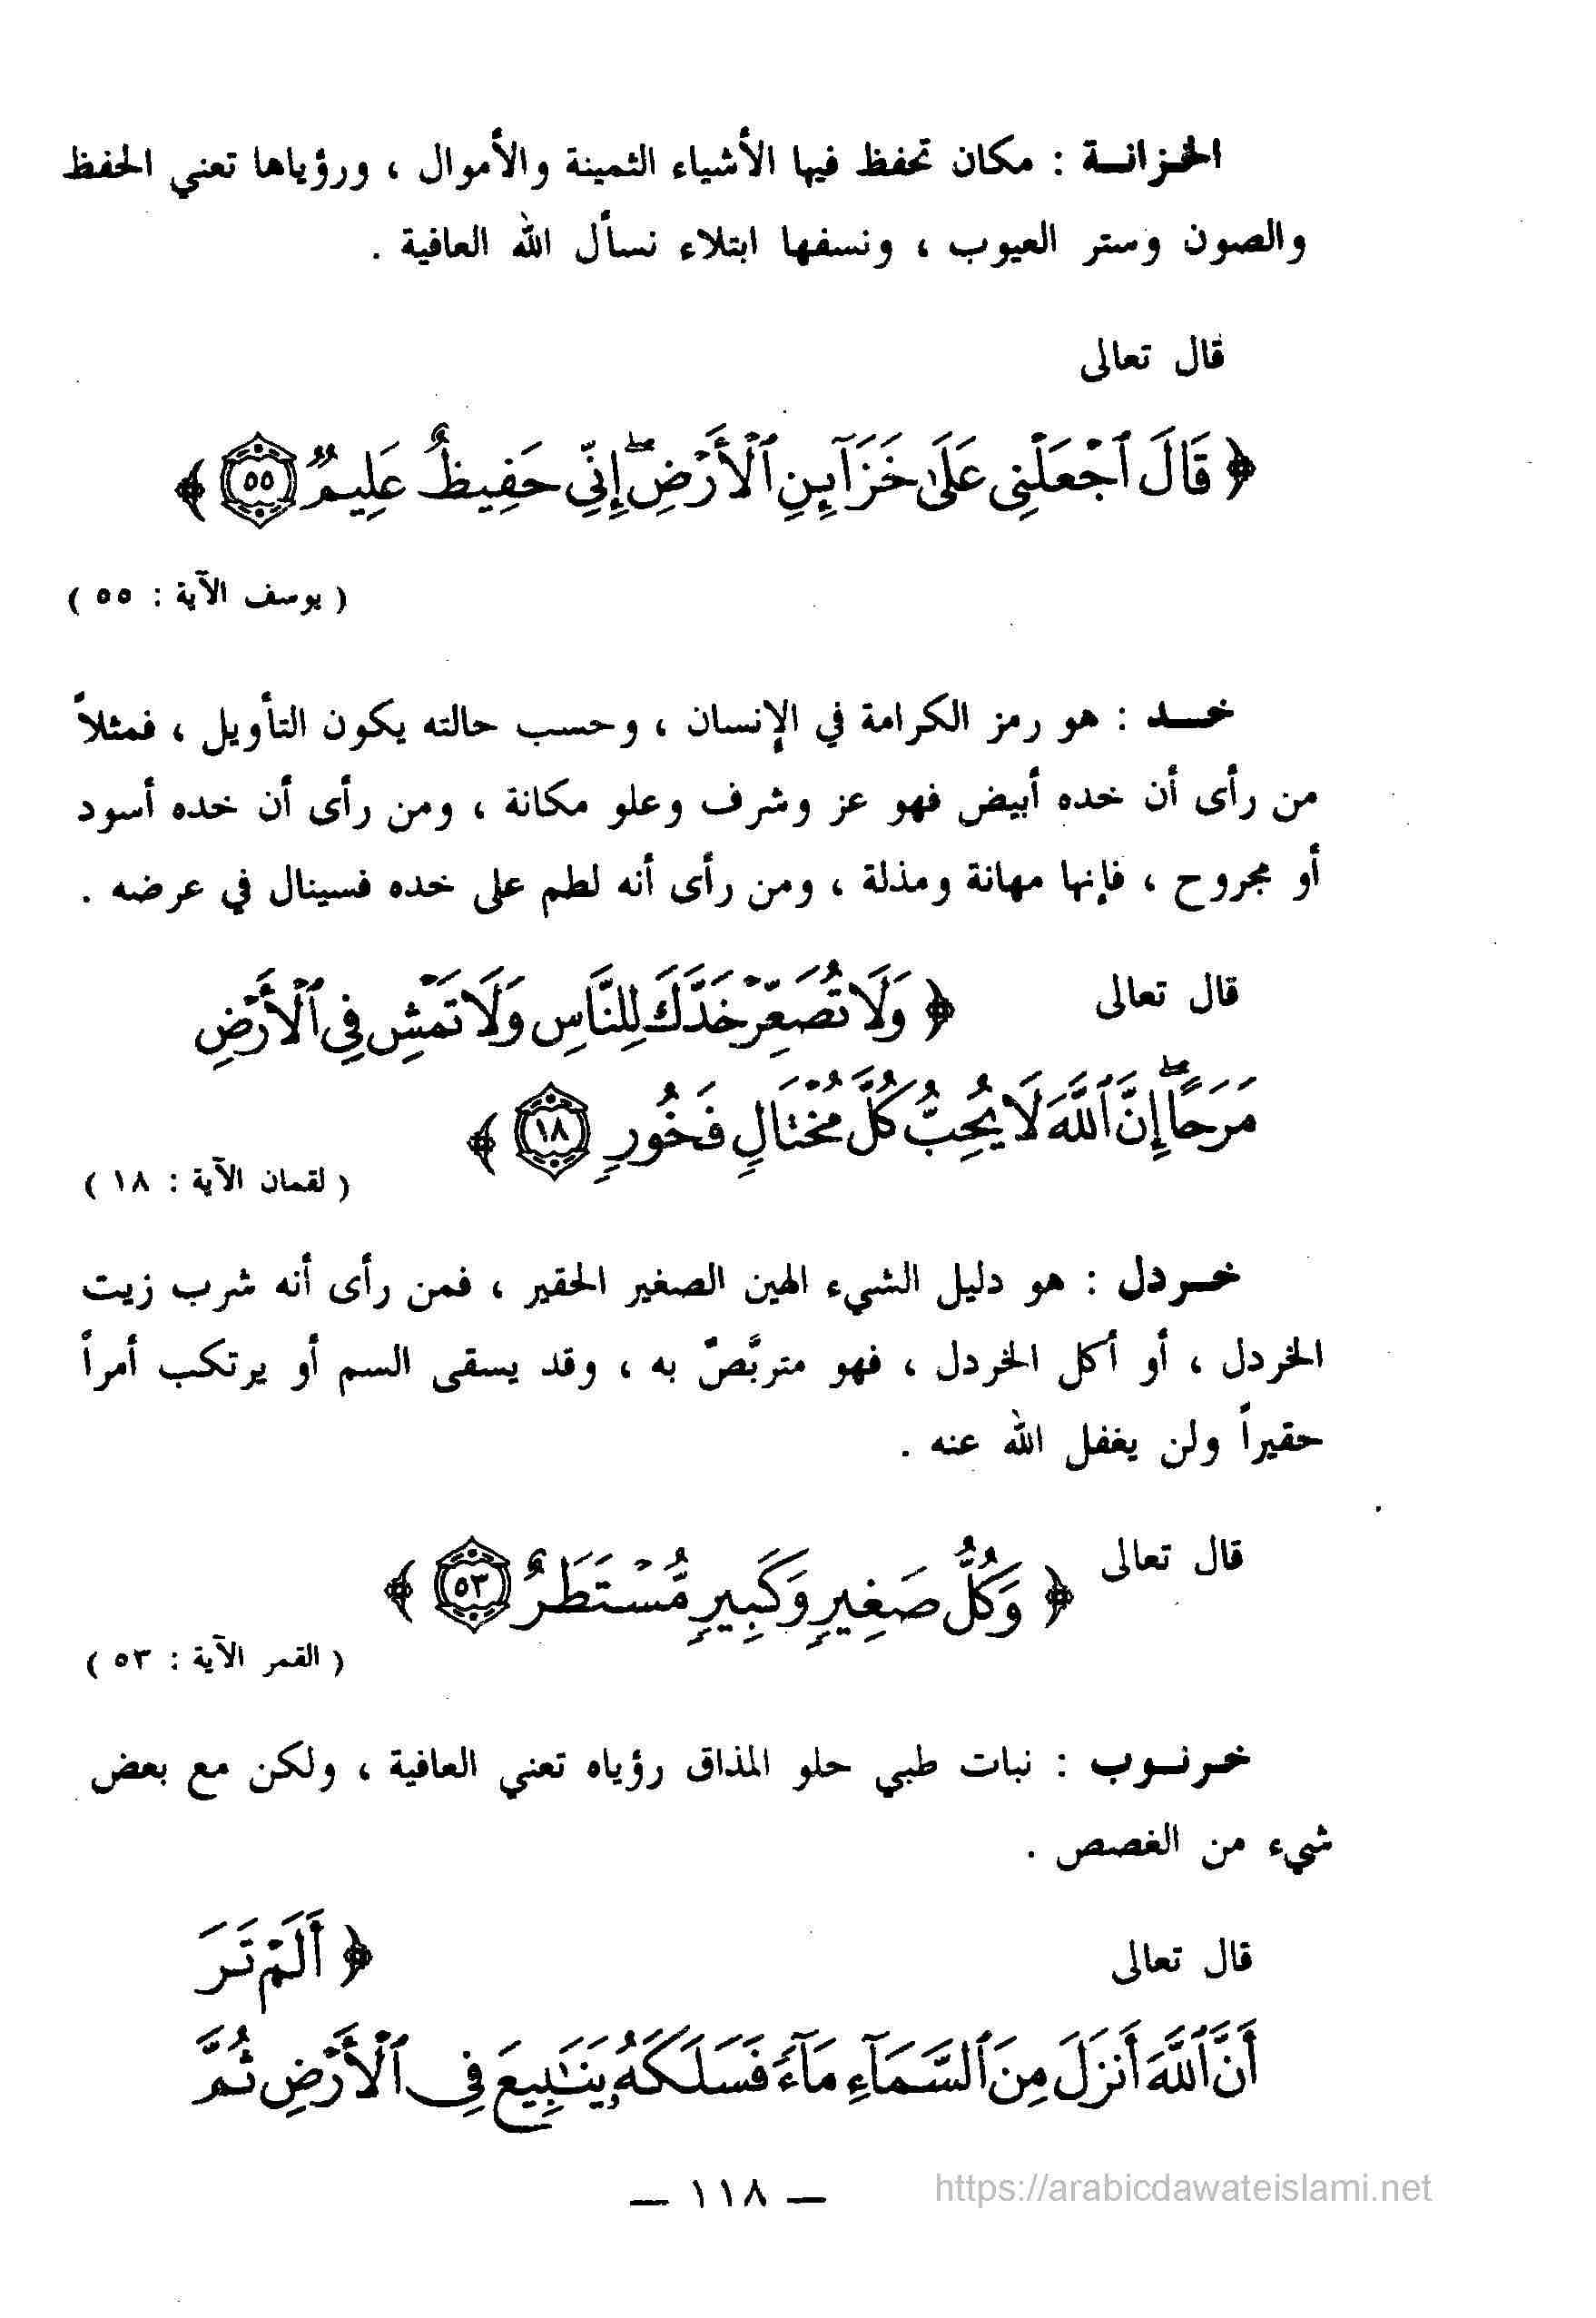 الخزانة : مكان تحفظ فيها الأشياء الثمينة والأموال ، ورؤياها تعني الحفظ
والصون وستر العيوب ، ونسفها ابتلاء نسأل الله العافية .
قال تعالى
﴿ قَالَ ٱجْعَلْنِى عَلَىٰ خَزَآئِنِ ٱلْأَرْضِ ۖ إِنِّى حَفِيظٌ عَلِيمٌ ٥٥ ﴾
( يوسف الآية : ٥٥ )
خد : هو رمز الكرامة في الإنسان ، وحسب حالته يكون التأويل ، فمثلاً
من رأى أن خده أبيض فهو عز وشرف وعلو مكانة ، ومن رأى أن خده أسود
أو مجروح ، فإنها مهانة ومذلة ، ومن رأى أنه لطم على خده فسينال في عرضه .
قال تعالى ﴿ وَلَا تُصَعِّرْ خَدَّكَ لِلنَّاسِ وَلَا تَمْشِ فِى ٱلْأَرْضِ
مَرَحًا ۖ إِنَّ ٱللَّهَ لَا يُحِبُّ كُلَّ مُخْتَالٍ فَخُورٍ ١٨ ﴾
( لقمان الآية : ١٨ )
خردل : هو دليل الشيء الهين الصغير الحقير ، فمن رأى أنه شرب زيت
الخردل ، أو أكل الخردل ، فهو متربَّصٌ به ، وقد يسقى السم أو يرتكب أمراً
حقيراً ولن يغفل الله عنه .
قال تعالى ﴿ وَكُلُّ صَغِيرٍ وَكَبِيرٍ مُّسْتَطَرٌ ٥٣ ﴾
( القمر الآية : ٥٣ )
خرنوب : نبات طبي حلو المذاق رؤياه تعني العافية ، ولكن مع بعض
شيء من الغصص .
قال تعالى ﴿ أَلَمْ تَرَ
أَنَّ ٱللَّهَ أَنزَلَ مِنَ ٱلسَّمَآءِ مَآءً فَسَلَكَهُۥ يَنَٰبِيعَ فِى ٱلْأَرْضِ ثُمَّ
— ١١٨ —
https://arabicdawateislami.net